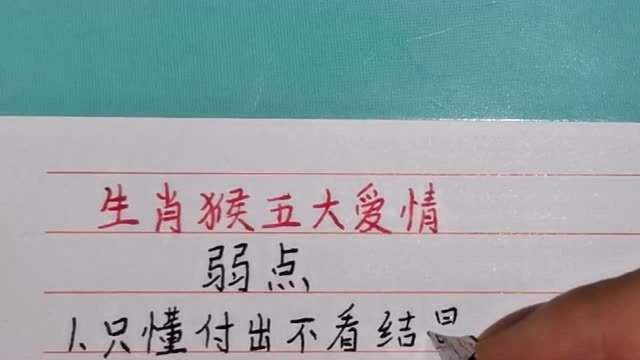 生肖猴五大爱情
弱点
1.只懂付出不看结